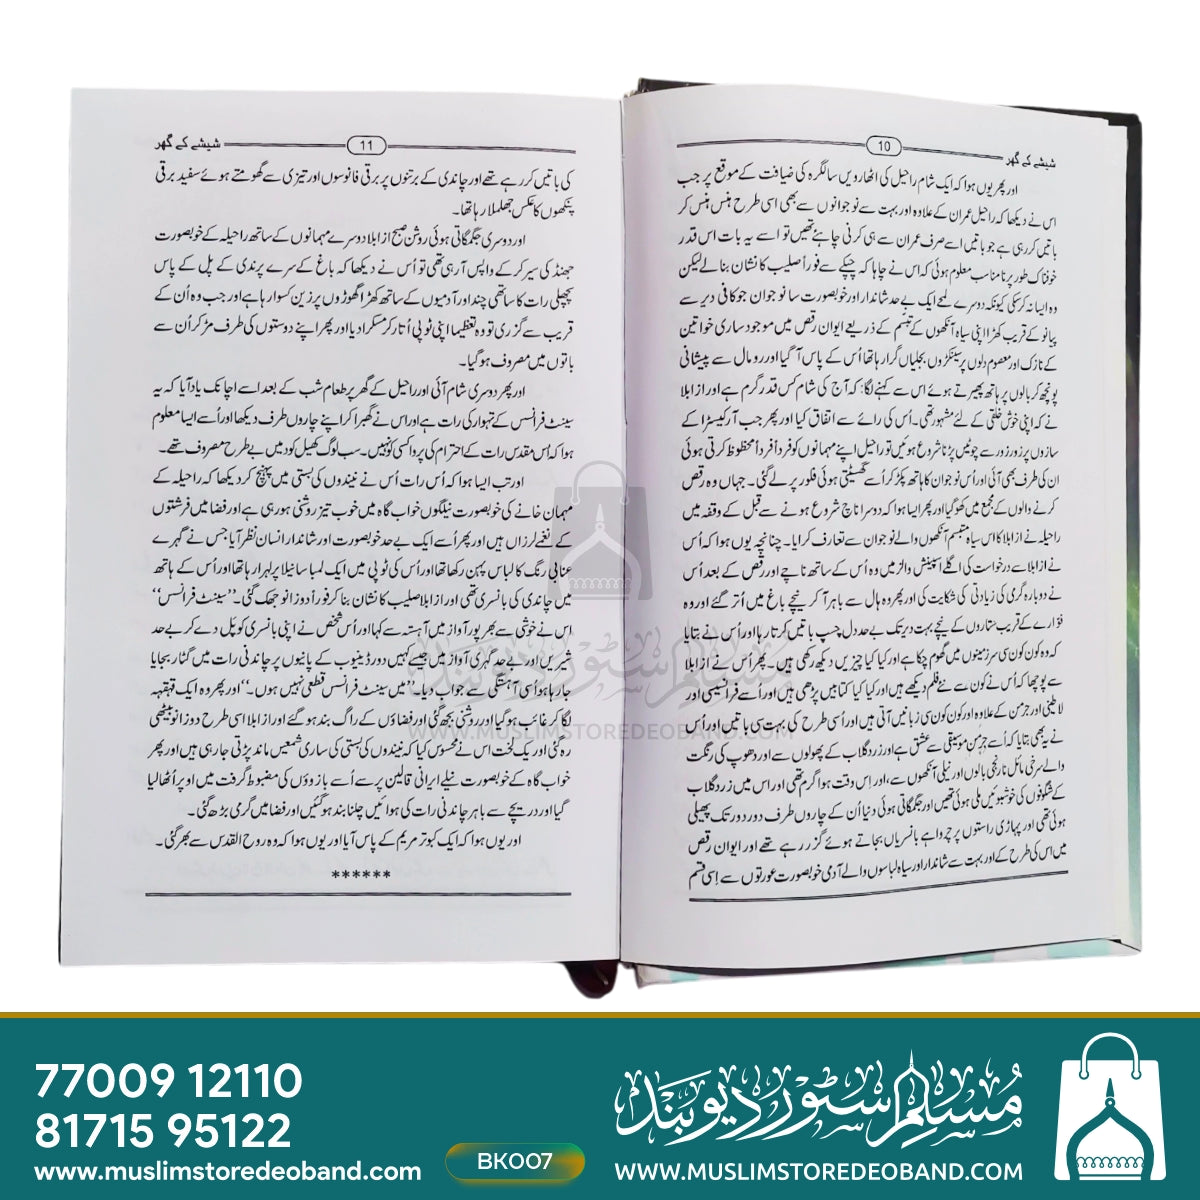 شیشے کے گھر
10
اور پھر یوں ہوا کہ ایک شام راحیل کی اٹھارویں سالگرہ کی ضیافت کے موقع پر جب
اس نے دیکھا کہ راحیل عمران کے علاوہ اور بہت سے نوجوانوں سے بھی اسی طرح ہنس ہنس کر
باتیں کر رہی ہے جو باتیں اسے صرف عمران سے ہی کرنی چاہئے تھیں تو اسے یہ بات اس قدر
خوفناک طور پر نامناسب معلوم ہوئی کہ اس نے چاہا کہ چپکے سے فوراً صلیب کا نشان بنا لے لیکن
وہ ایسا نہ کر سکی کیونکہ دوسرے لمحے ایک بے حد شاندار اور خوبصورت سا نوجوان جو کافی دیر سے
پیانو کے قریب کھڑا اپنی سیاہ آنکھوں کے تبسم کے ذریعے ایوان رقص میں موجود ساری خواتین
کے نازک اور معصوم دلوں پر سینکڑوں بجلیاں گرا رہا تھا اُس کے پاس آ گیا اور رومال سے پیشانی
پونچھ کر بالوں پر ہاتھ پھیرتے ہوئے اس سے کہنے لگا: کہ آج کی شام کس قدر گرم ہے اور ازابلا
نے کہ اپنی خوش خلقی کے لئے مشہور تھی۔ اُس کی رائے سے اتفاق کیا اور پھر جب آرکیسٹرا کے
سازوں پر زور زور سے چوٹیں پڑنا شروع ہوئیں تو راحیل اپنے مہمانوں کو فرداً فرداً محظوظ کرتی ہوئی
ان کی طرف بھی آئی اور اُس نوجوان کا ہاتھ پکڑ کر اُسے گھسیٹتی ہوئی فلور پر لے گئی۔ جہاں وہ رقص
کرنے والوں کے مجمع میں کھو گیا اور پھر ایسا ہوا کہ دوسرا ناچ شروع ہونے سے قبل کے وقفہ میں
راحیلہ نے ازابلا کا اس سیاہ متبسم آنکھوں والے نوجوان سے تعارف کرایا۔ چنانچہ یوں ہوا کہ اُس
نے ازابلا سے درخواست کی اگلے اسپینش والز میں وہ اُس کے ساتھ ناچے اور رقص کے بعد اُس
نے دوبارہ گرمی کی زیادتی کی شکایت کی اور پھر وہ ہال سے باہر آ کر نیچے باغ میں اُتر گئے اور وہ
فوّارے کے قریب ستاروں کے نیچے بہت دیر تک بے حد دل چسپ باتیں کرتا رہا اور اُس نے بتایا
کہ وہ کون کون سی سرزمینوں میں گھوم چکا ہے اور کیا کیا چیزیں دیکھ رکھی ہیں۔ پھر اُس نے ازابلا
سے پوچھا کہ اُس نے کون سے نئے فلم دیکھے ہیں اور کیا کیا کتابیں پڑھی ہیں اور اُسے فرانسیسی اور
لاطینی اور جرمن کے علاوہ اور کون کون سی زبانیں آتی ہیں اور اُسی طرح کی بہت سی باتیں اور اُس
نے یہ بھی بتایا کہ اُسے جرمن موسیقی سے عشق ہے اور زرد گلاب کے پھولوں سے اور دھوپ کی رنگت
والے سرخی مائل نارنجی بالوں اور نیلی آنکھوں سے، اور اس وقت ہوا گرم تھی اور اس میں زرد گلاب
کے شگوفوں کی خوشبوئیں ملی ہوئی تھیں اور جگمگاتی ہوئی دنیا اُن کے چاروں طرف دور دور تک پھیلی
ہوئی تھی اور پہاڑی راستوں پر چرواہے بانسریاں بجاتے ہوئے گزر رہے تھے اور ایوان رقص
میں اس کی طرح کے اور بہت سے شاندار اور سیاہ لباسوں والے آدمی خوبصورت عورتوں سے اِسی قسم
شیشے کے گھر
11
کی باتیں کر رہے تھے اور چاندی کے برتنوں پر برقی فانوسوں اور تیزی سے گھومتے ہوئے سفید برقی
پنکھوں کا عکس جھلملا رہا تھا۔
اور دوسری جگمگاتی ہوئی روشن صبح ازابلا دوسرے مہمانوں کے ساتھ راحیلہ کے خوبصورت
جھنڈ کی سیر کر کے واپس آ رہی تھی تو اُس نے دیکھا کہ باغ کے سرے پر ندی کے پل کے پاس
پچھلی رات کا ساتھی چند اور آدمیوں کے ساتھ کھڑا گھوڑوں پر زین کسوا رہا ہے اور جب وہ اُن کے
قریب سے گزری تو وہ تعظیماً اپنی ٹوپی اُتار کر مسکرا دیا اور پھر اپنے دوستوں کی طرف مڑ کر اُن سے
باتوں میں مصروف ہو گیا۔
اور پھر دوسری شام آئی اور راحیل کے گھر پر طعام شب کے بعد اسے اچانک یاد آیا کہ یہ
سینٹ فرانس کے تہوار کی رات ہے اور اس نے گھبرا کر اپنے چاروں طرف دیکھا اور اُسے ایسا معلوم
ہوا کہ اُس مقدس رات کے احترام کی پروا کسی کو نہیں۔ سب لوگ کھیل کود میں بے طرح مصروف تھے۔
اور تب ایسا ہوا کہ اُس رات اُس نے نیندوں کی بستی میں پہنچ کر دیکھا کہ راحیلہ کے
مہمان خانے کی خوبصورت نیلگوں خواب گاہ میں خوب تیز روشنی ہو رہی ہے اور فضا میں فرشتوں
کے نغمے لرزاں ہیں اور پھر اُسے ایک بے حد خوبصورت اور شاندار انسان نظر آیا جس نے گہرے
عنابی رنگ کا لباس پہن رکھا تھا اور اُس کی ٹوپی میں ایک لمبا سا نیلا پر لہرا رہا تھا اور اُس کے ہاتھ
میں چاندی کی بانسری تھی اور ازابلا صلیب کا نشان بنا کر فوراً دوزانو جھک گئی۔ ”سینٹ فرانس“
اس نے خوشی سے بھرپور آواز میں آہستہ سے کہا اور اُس شخص نے اپنی بانسری کو پل دے کر بے حد
شیریں اور بے حد گہری آواز میں جیسے کہیں دور ڈینیوب کے پانیوں پر چاندنی رات میں گٹار بجایا
جا رہا ہو اُسی آہستگی سے جواب دیا۔ ”میں سینٹ فرانس قطعی نہیں ہوں۔“ اور پھر وہ ایک قہقہہ
لگا کر غائب ہو گیا اور روشنی بجھ گئی اور فضاؤں کے راگ بند ہو گئے اور ازابلا اسی طرح دوزانو بیٹھی
رہ گئی اور یک لخت اس نے محسوس کیا کہ نیندوں کی بستی کی ساری شمعیں ماند پڑتی جا رہی ہیں اور پھر
خواب گاہ کے خوبصورت نیلے ایرانی قالین پر سے اُسے بازوؤں کی مضبوط گرفت میں اوپر اُٹھا لیا
گیا اور دریچے سے باہر چاندنی رات کی ہوائیں چلنا بند ہو گئیں اور فضا میں گرمی بڑھ گئی۔
اور یوں ہوا کہ ایک کبوتر مریم کے پاس آیا اور یوں ہوا کہ وہ روح القدس سے بھر گئی۔
******
مسلم سٹور دیوبند
WWW.MUSLIMSTOREDEOBAND.COM
77009 12110
81715 95122
www.muslimstoredeoband.com
BK007
مسلم سٹور دیوبند
WWW.MUSLIMSTOREDEOBAND.COM